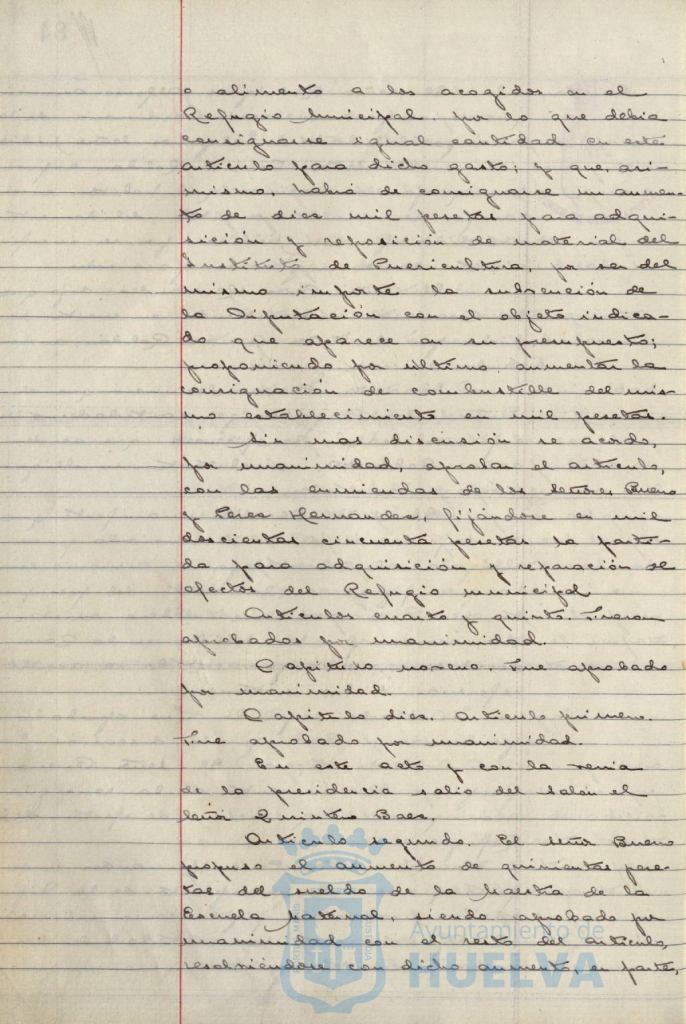 o alimento a los acogidos en el
Refugio Municipal, por lo que debia
consignarse igual cantidad en este
articulo para dicho gasto; y que, asi-
mismo, habia de consignarse un aumen-
to de diez mil pesetas para adqui-
sición y reposición de material del
Instituto de Puericultura, por ser del
mismo importe la subvención de
la Diputación con el objeto indica-
do que aparece en su presupuesto;
proponiendo por último, aumentar la
consignación de combustible del mis-
mo establecimiento en mil pesetas.
Sin mas discusión se acordo,
por unanimidad, aprobar el articulo,
con las enmiendas de los señores Bueno
y Perez Hernandez, fijándose en mil
doscientas cincuenta pesetas la parti-
da para adquisición y reparación de
efectos del Refugio municipal
Articulos cuarto y quinto. Fueron
aprobados por unanimidad.
Capitulo noveno. Fue aprobado
por unanimidad.
Capitulo diez. Articulo primero.
Fue aprobado por unanimidad.
En este acto y con la venia
de la presidencia salio del salón el
señor Quintero Baez.
Articulo segundo. El señor Bueno
propuso el aumento de quinientas pese-
tas del sueldo de la Maestra de la
Escuela Maternal, siendo aprobado por
unanimidad con el resto del articulo,
resolviéndose con dicho aumento, en parte,
Ayuntamiento de
HUELVA